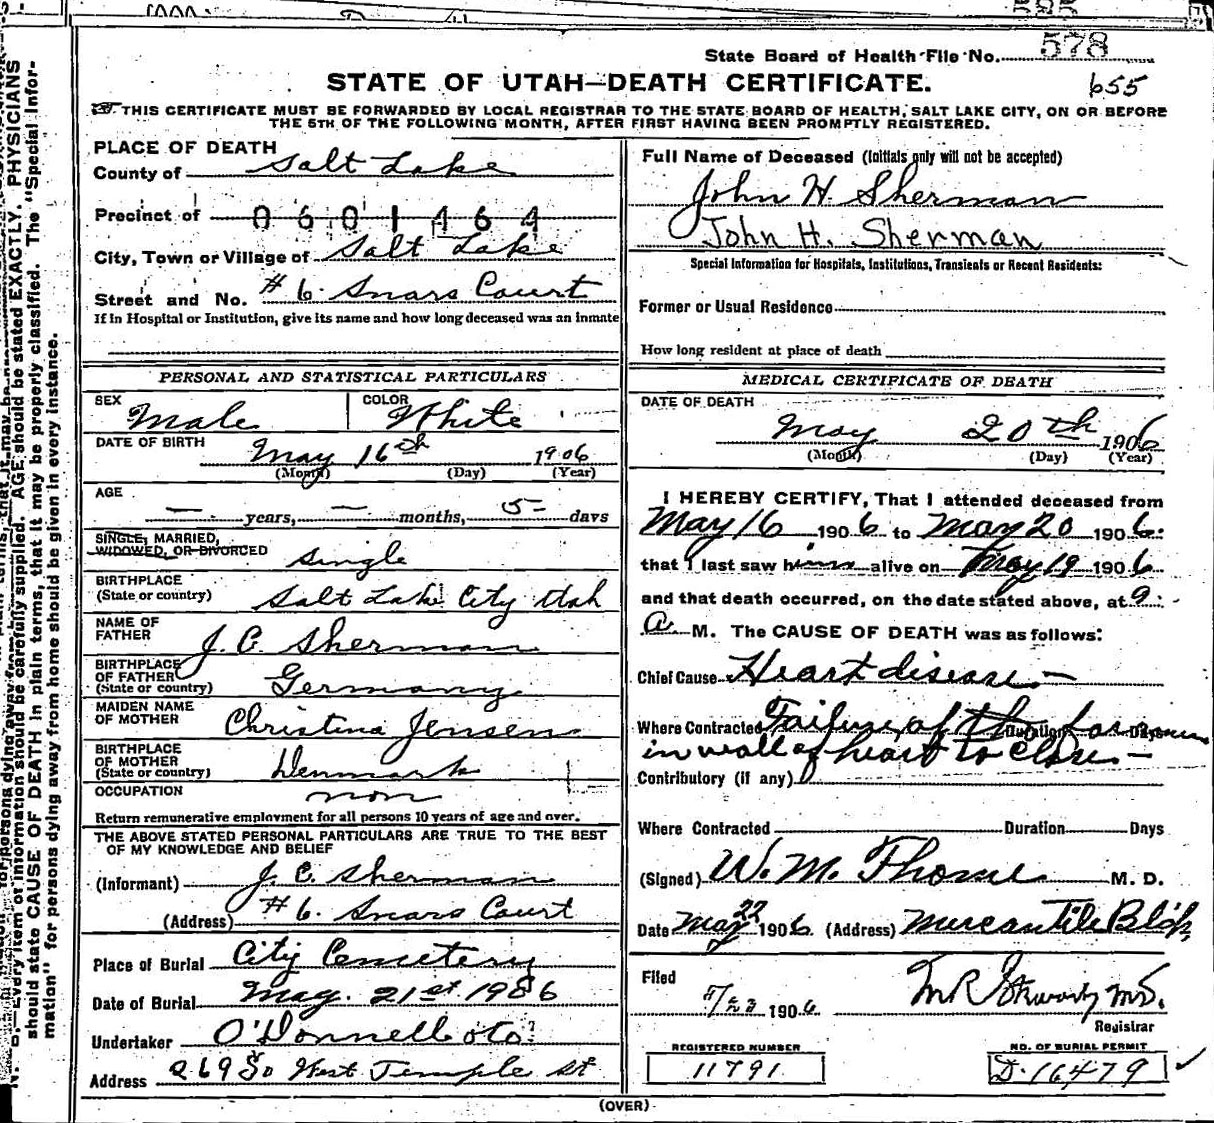 State Board of Health File No. 578
STATE OF UTAH—DEATH CERTIFICATE.
655
THIS CERTIFICATE MUST BE FORWARDED BY LOCAL REGISTRAR TO THE STATE BOARD OF HEALTH, SALT LAKE CITY, ON OR BEFORE
THE 5TH OF THE FOLLOWING MONTH, AFTER FIRST HAVING BEEN PROMPTLY REGISTERED.
PLACE OF DEATH
County of Salt Lake
Precinct of 0601464
City, Town or Village of Salt Lake
Street and No. # 6. Snars Court
If in Hospital or Institution, give its name and how long deceased was an inmate
Full Name of Deceased (Initials only will not be accepted)
John H. Sherman
John H. Sherman
Special Information for Hospitals, Institutions, Transients or Recent Residents:
Former or Usual Residence
How long resident at place of death
PERSONAL AND STATISTICAL PARTICULARS
SEX Male
COLOR White
DATE OF BIRTH May 16th 1906
(Month) (Day) (Year)
AGE
— years, — months, 5 days
SINGLE, MARRIED,
WIDOWED, OR DIVORCED single
BIRTHPLACE
(State or country) Salt Lake City Utah
NAME OF
FATHER J. C. Sherman
BIRTHPLACE
OF FATHER
(State or country) Germany
MAIDEN NAME
OF MOTHER Christina Jensen
BIRTHPLACE
OF MOTHER
(State or country) Denmark
OCCUPATION non
Return remunerative employment for all persons 10 years of age and over.
THE ABOVE STATED PERSONAL PARTICULARS ARE TRUE TO THE BEST
OF MY KNOWLEDGE AND BELIEF
(Informant) J. C. Sherman
(Address) # 6. Snars Court
Place of Burial City Cemetery
Date of Burial May. 21st. 1906
Undertaker O'Donnell & Co.
Address 269 So West Temple St
MEDICAL CERTIFICATE OF DEATH
DATE OF DEATH
May 20th 1906
(Month) (Day) (Year)
I HEREBY CERTIFY, That I attended deceased from
May 16 1906 to May 20 1906.
that I last saw him alive on May 19 1906
and that death occurred, on the date stated above, at 9
a M. The CAUSE OF DEATH was as follows:
Chief Cause Heart disease.—
Where Contracted Duration Days
Failure of the foramen
in wall of heart to close.—
Contributory (if any)
Where Contracted Duration Days
(Signed) W. M. Thorne M. D.
Date May 22 1906 (Address) Mercantile Blk,
Filed
5/23 1906. M R Stewart, M.D.
Registrar
REGISTERED NUMBER
11791
NO. OF BURIAL PERMIT
D. 16479
(OVER)
N. B.—Every item of information should be carefully supplied. AGE should be stated EXACTLY. PHYSICIANS
should state CAUSE OF DEATH in plain terms, that it may be properly classified. The "Special Infor-
mation" for persons dying away from home should be given in every instance.